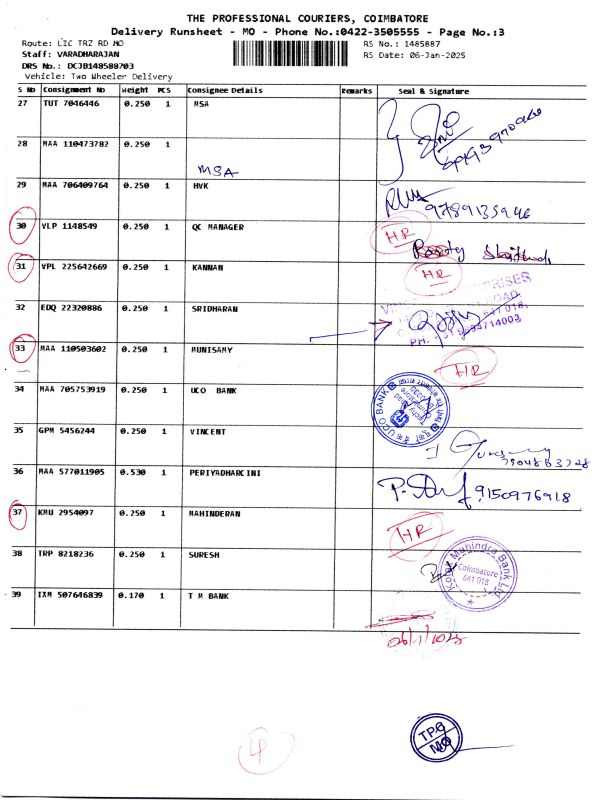 THE PROFESSIONAL COURIERS, COIMBATORE
Delivery Runsheet - MO - Phone No.:0422-3505555 - Page No.:3
Route: LIC TRZ RD MO
RS No.: 1485887
Staff: VARADHARAJAN
RS Date: 06-Jan-2025
DRS No.: DCJB148588703
Vehicle: Two Wheeler Delivery
S No Consignment No Weight PCS Consignee Details Remarks Seal & Signature
27 TUT 7046446 0.250 1 MSA
28 MAA 110473782 0.250 1 MSA
29 MAA 706409764 0.250 1 HVK 9789135946
30 VLP 1148549 0.250 1 QC MANAGER HR
31 VPL 225642669 0.250 1 KANNAN HR
32 EDQ 22320886 0.250 1 SRIDHARAN
33 MAA 110503602 0.250 1 MUNISAMY HR
34 MAA 705753919 0.250 1 UCO BANK UCO BANK
35 GPM 5456244 0.250 1 VINCENT
36 MAA 577011905 0.530 1 PERIYADHARCINI 9150976918
37 KMU 2954097 0.250 1 MAHINDERAN HR
38 TRP 8218236 0.250 1 SURESH Kotak Mahindra Bank Ltd Coimbatore 641 018
39 IXM 507646839 0.170 1 T M BANK
06/1/2025
4
TPC
MO